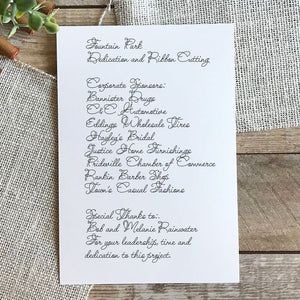 Fountain Park
Dedication and Ribbon Cutting
Corporate Sponsors:
Bannister Drugs
C&C Automotive
Eddings Wholesale Tires
Hayley's Bridal
Justice Home Furnishings
Prideville Chamber of Commerce
Rankin Barber Shop
Town's Casual Fashions
Special Thanks to:
Bob and Melanie Rainwater
For your leadership, time and
dedication to this project.